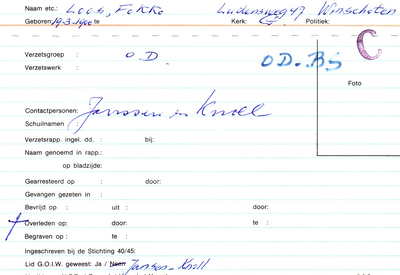 Naam etc.: Loos, Fokko Ludensweg 47 Winschoten
Geboren: 19-3-1900 te Kerk: G. Politiek:
C
Verzetsgroep : O.D.
Verzetswerk : O.D.-BS
Foto
Contactpersonen: Janssen en Knoll
Schuilnamen
Verzetsrapp. ingel. dd. : bij:
Naam genoemd in rapp.:
op bladzijde:
Gearresteerd op : door:
Gevangen gezeten in :
Bevrijd op : uit : door:
Overleden op: door: te :
Begraven op : te :
Ingeschreven bij de Stichting 40/45:
Lid G.O.I.W. geweest: Ja / Neen Jansen-Knoll